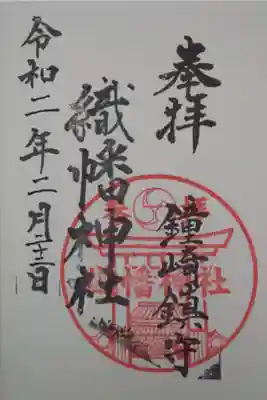 奉拝
鐘崎鎮守
織幡神社
令和二年二月二十三日